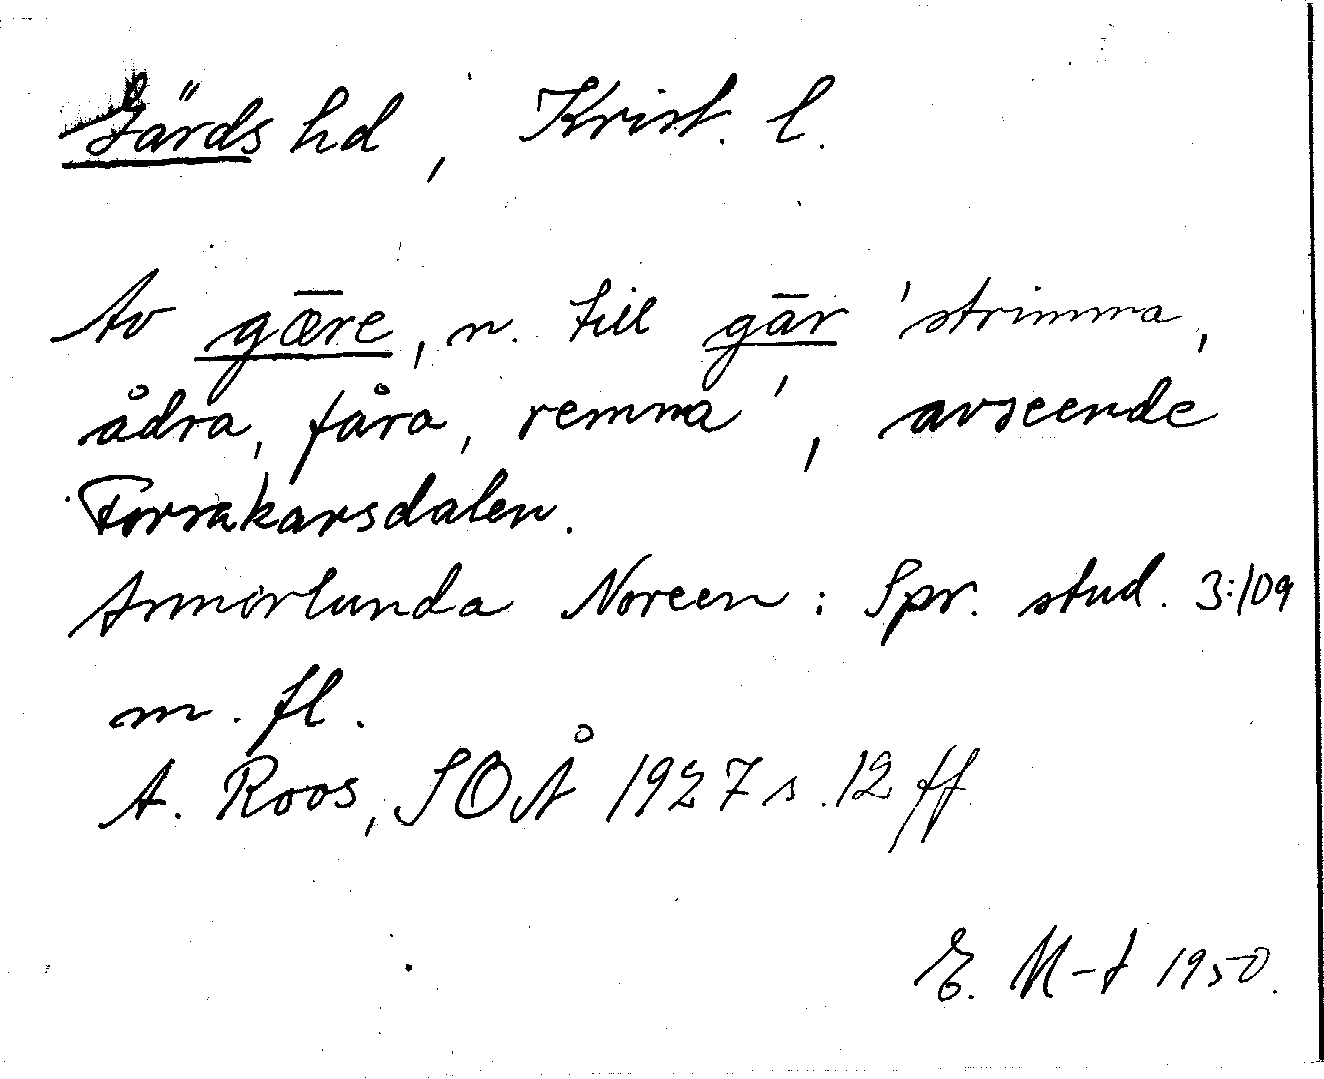 Gärds hd, Krist. l.
Av gǣre, n. till gār 'strimma,
ådra, fåra, remma', avseende
Forsakarsdalen.
Annorlunda Noreen: Spr. stud. 3:109
m. fl.
A. Roos, SOÅ 1927 s. 12 ff
E. M-t 1950.